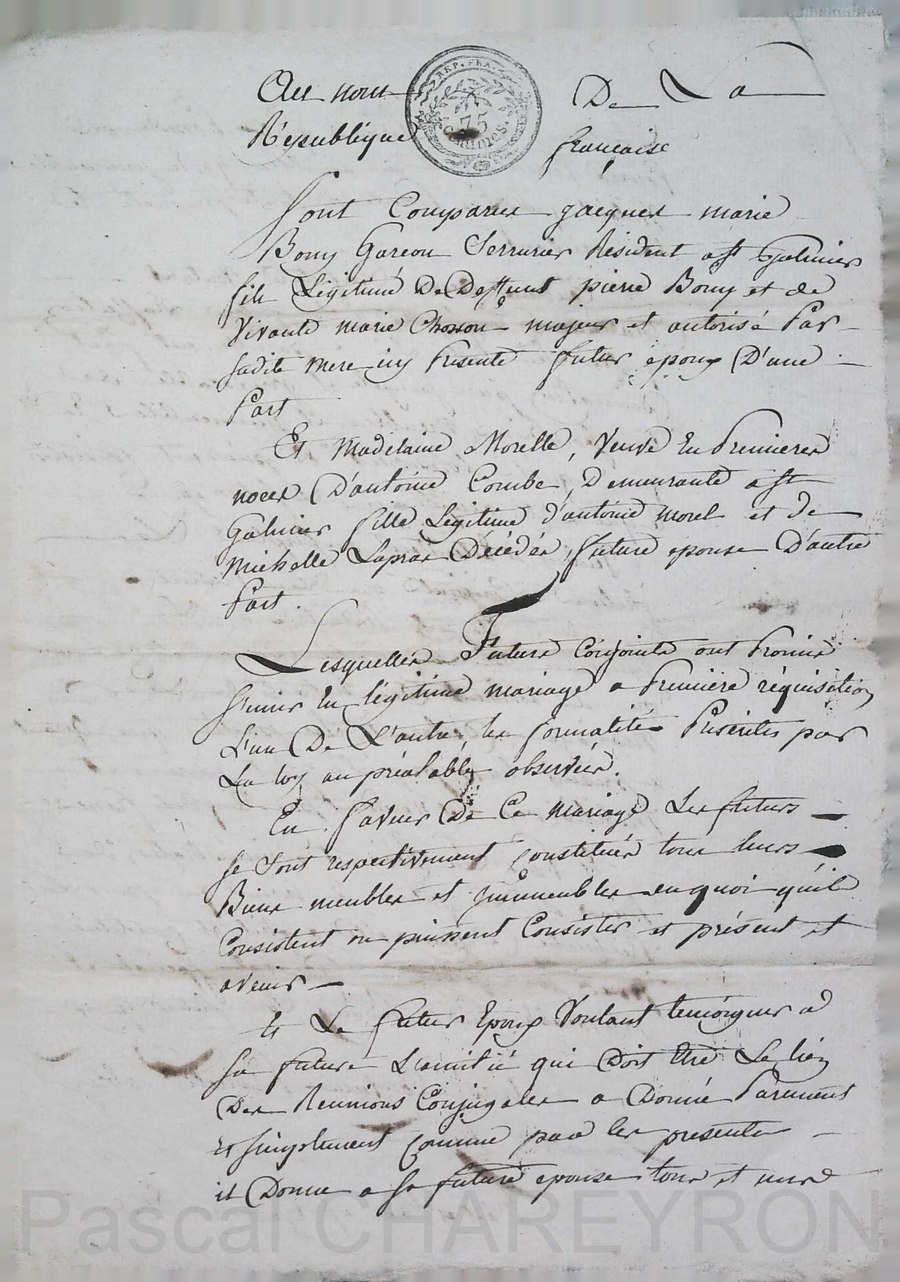 Au nom De La
République française
REP. FRA.
75
centimes.
Sont Comparus jacques marie
Bomy Garcon Serrurier Résident a St Galmier
fils Légitime De Deffunt pierre Bomy et de
Vivante marie Chosson majeur et autorisé Par
sadite mere icy Presente futur epoux D'une
Part
Et Madelaine Morelle, Veuve En Premieres
noces D'antoine Combe, Demeurante a St
Galmier fille Légitime d'antoine morel et de
Michelle Lapras Décédés, future epouse D'autre
Part.
Lesquelles Future Conjoints ont Promis
s'unir En légitime mariage a Première réquisition
L'un De L'autre, les formalités Presérites par
La loy au préalable observées.
En faveur De Ce mariage Les futurs
se sont respectivement constitués tous leurs
Biens meubles et immeubles en quoi qu'ils
Consistent ou puissent Consister et présent et
avenir
Et Le futur Epoux Voulant temoigner a
sa future L'amitié qui Doit être Le lien
Des Reunions Conjugales a Donné Parement
et simplement comme par les presentes
il Donne a sa future epouse tous et uns
Pascal CHAREYRON